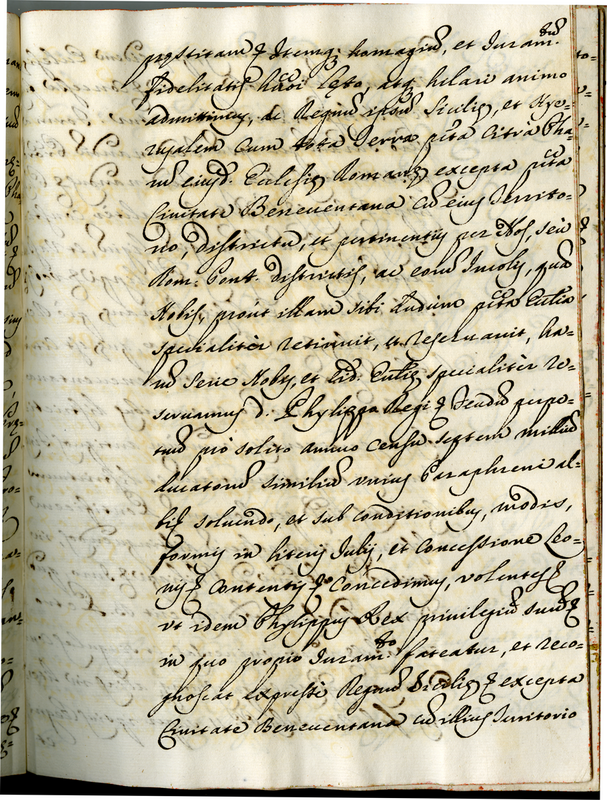 prestitam & Itemq; homagiũ, et Juram.tũ
fidelitatis hm̃oi Lgto, atq; hilari animo
admittimus, ac Regnũ ipsũ Siciliæ, et Hye=
rusalem cum tota Terra pñta Citra Pha
rũ eiusd. Ecclesiæ Romanæ excepta pñta
Ciuitate Beneuentana cũ eius Territo=
rio, districtu, et pertinentijs per Nos, seu
Rom. Pont. districtis, ac eorũ Incolis, quã
Nobis, prout illam sibi dudum pñta Ecclia
specialiter retinuit, et reseruauit, ha=
rũ serie Nobis, et eid. Eccliæ specialiter re=
seruamus d. Phylippo Regi & feudũ perpe=
tuũ pro solito annuo censu septem milliũ
ducatorũ similiũ unius Paraphreni al=
bi soluendo, et sub conditionibus, modis,
formis in literis Julij, et Concessione Leo=
nis & contentis & Concedimus, volentes &
vt idem Phylippus Rex priuilegiũ suũ &
in quo proprio Juram.to fateatur, et reco=
gnoscat expresse Regnũ Siciliæ & excepta
Ciuitate Beneuentana cũ illius Territorio